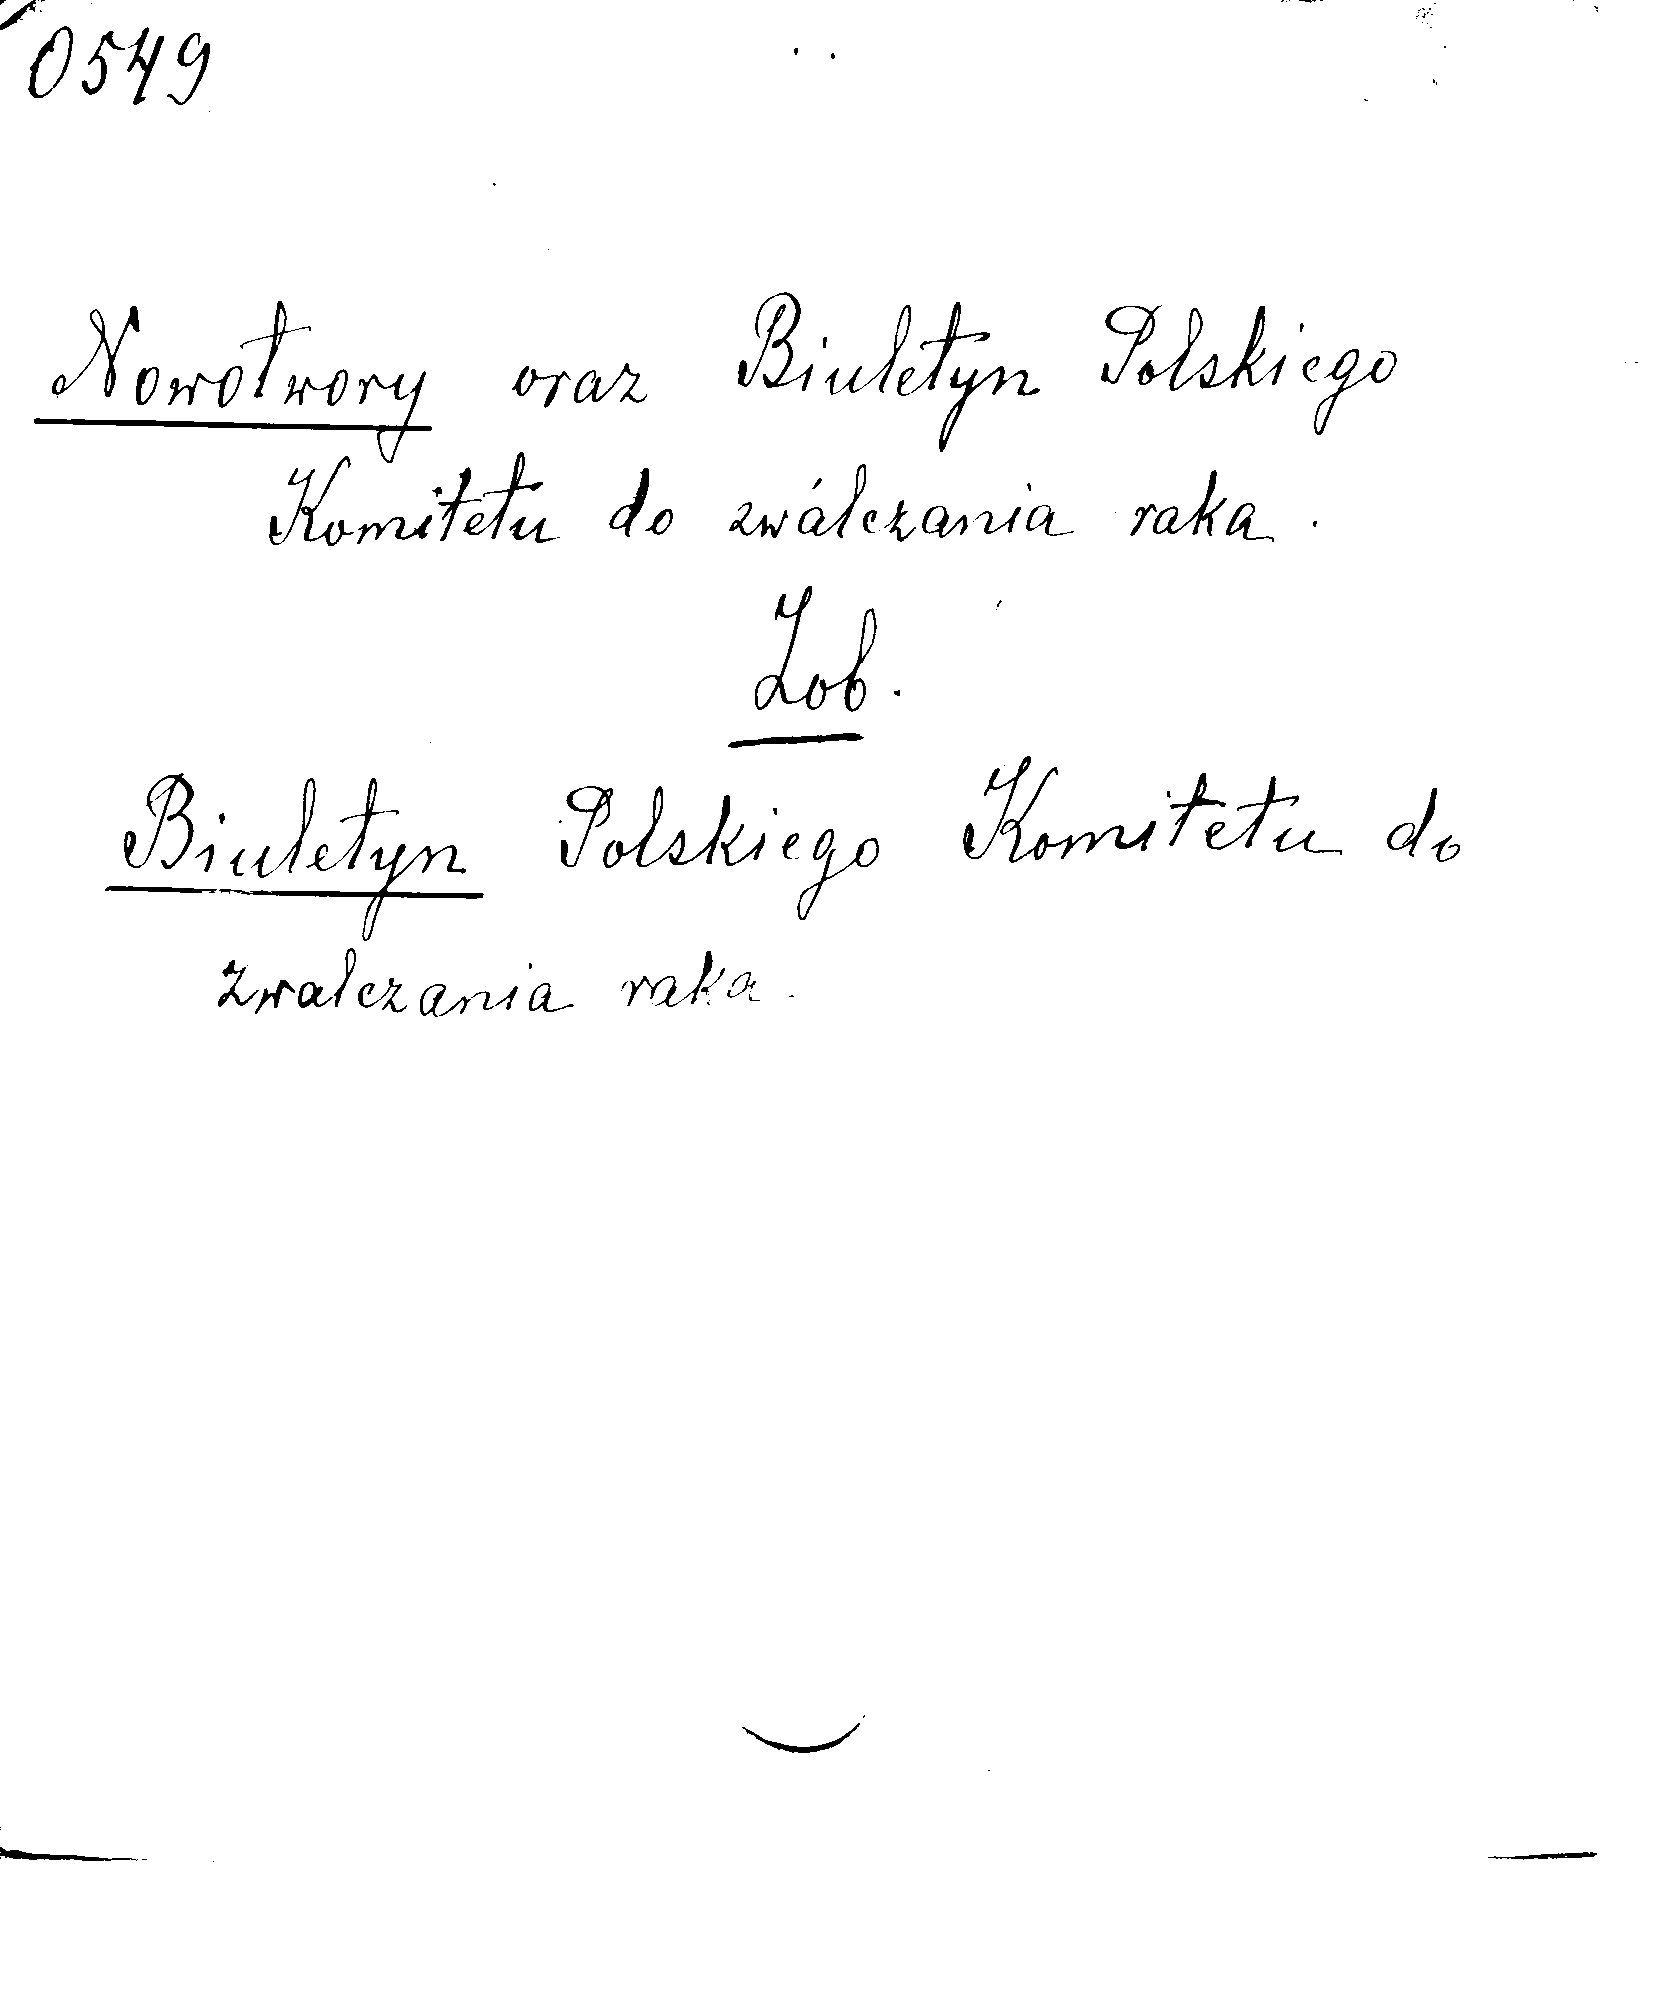 0549
Nowotwory oraz Biuletyn Polskiego
Komitetu do zwalczania raka.
Zob.
Biuletyn Polskiego Komitetu do
zwalczania raka.